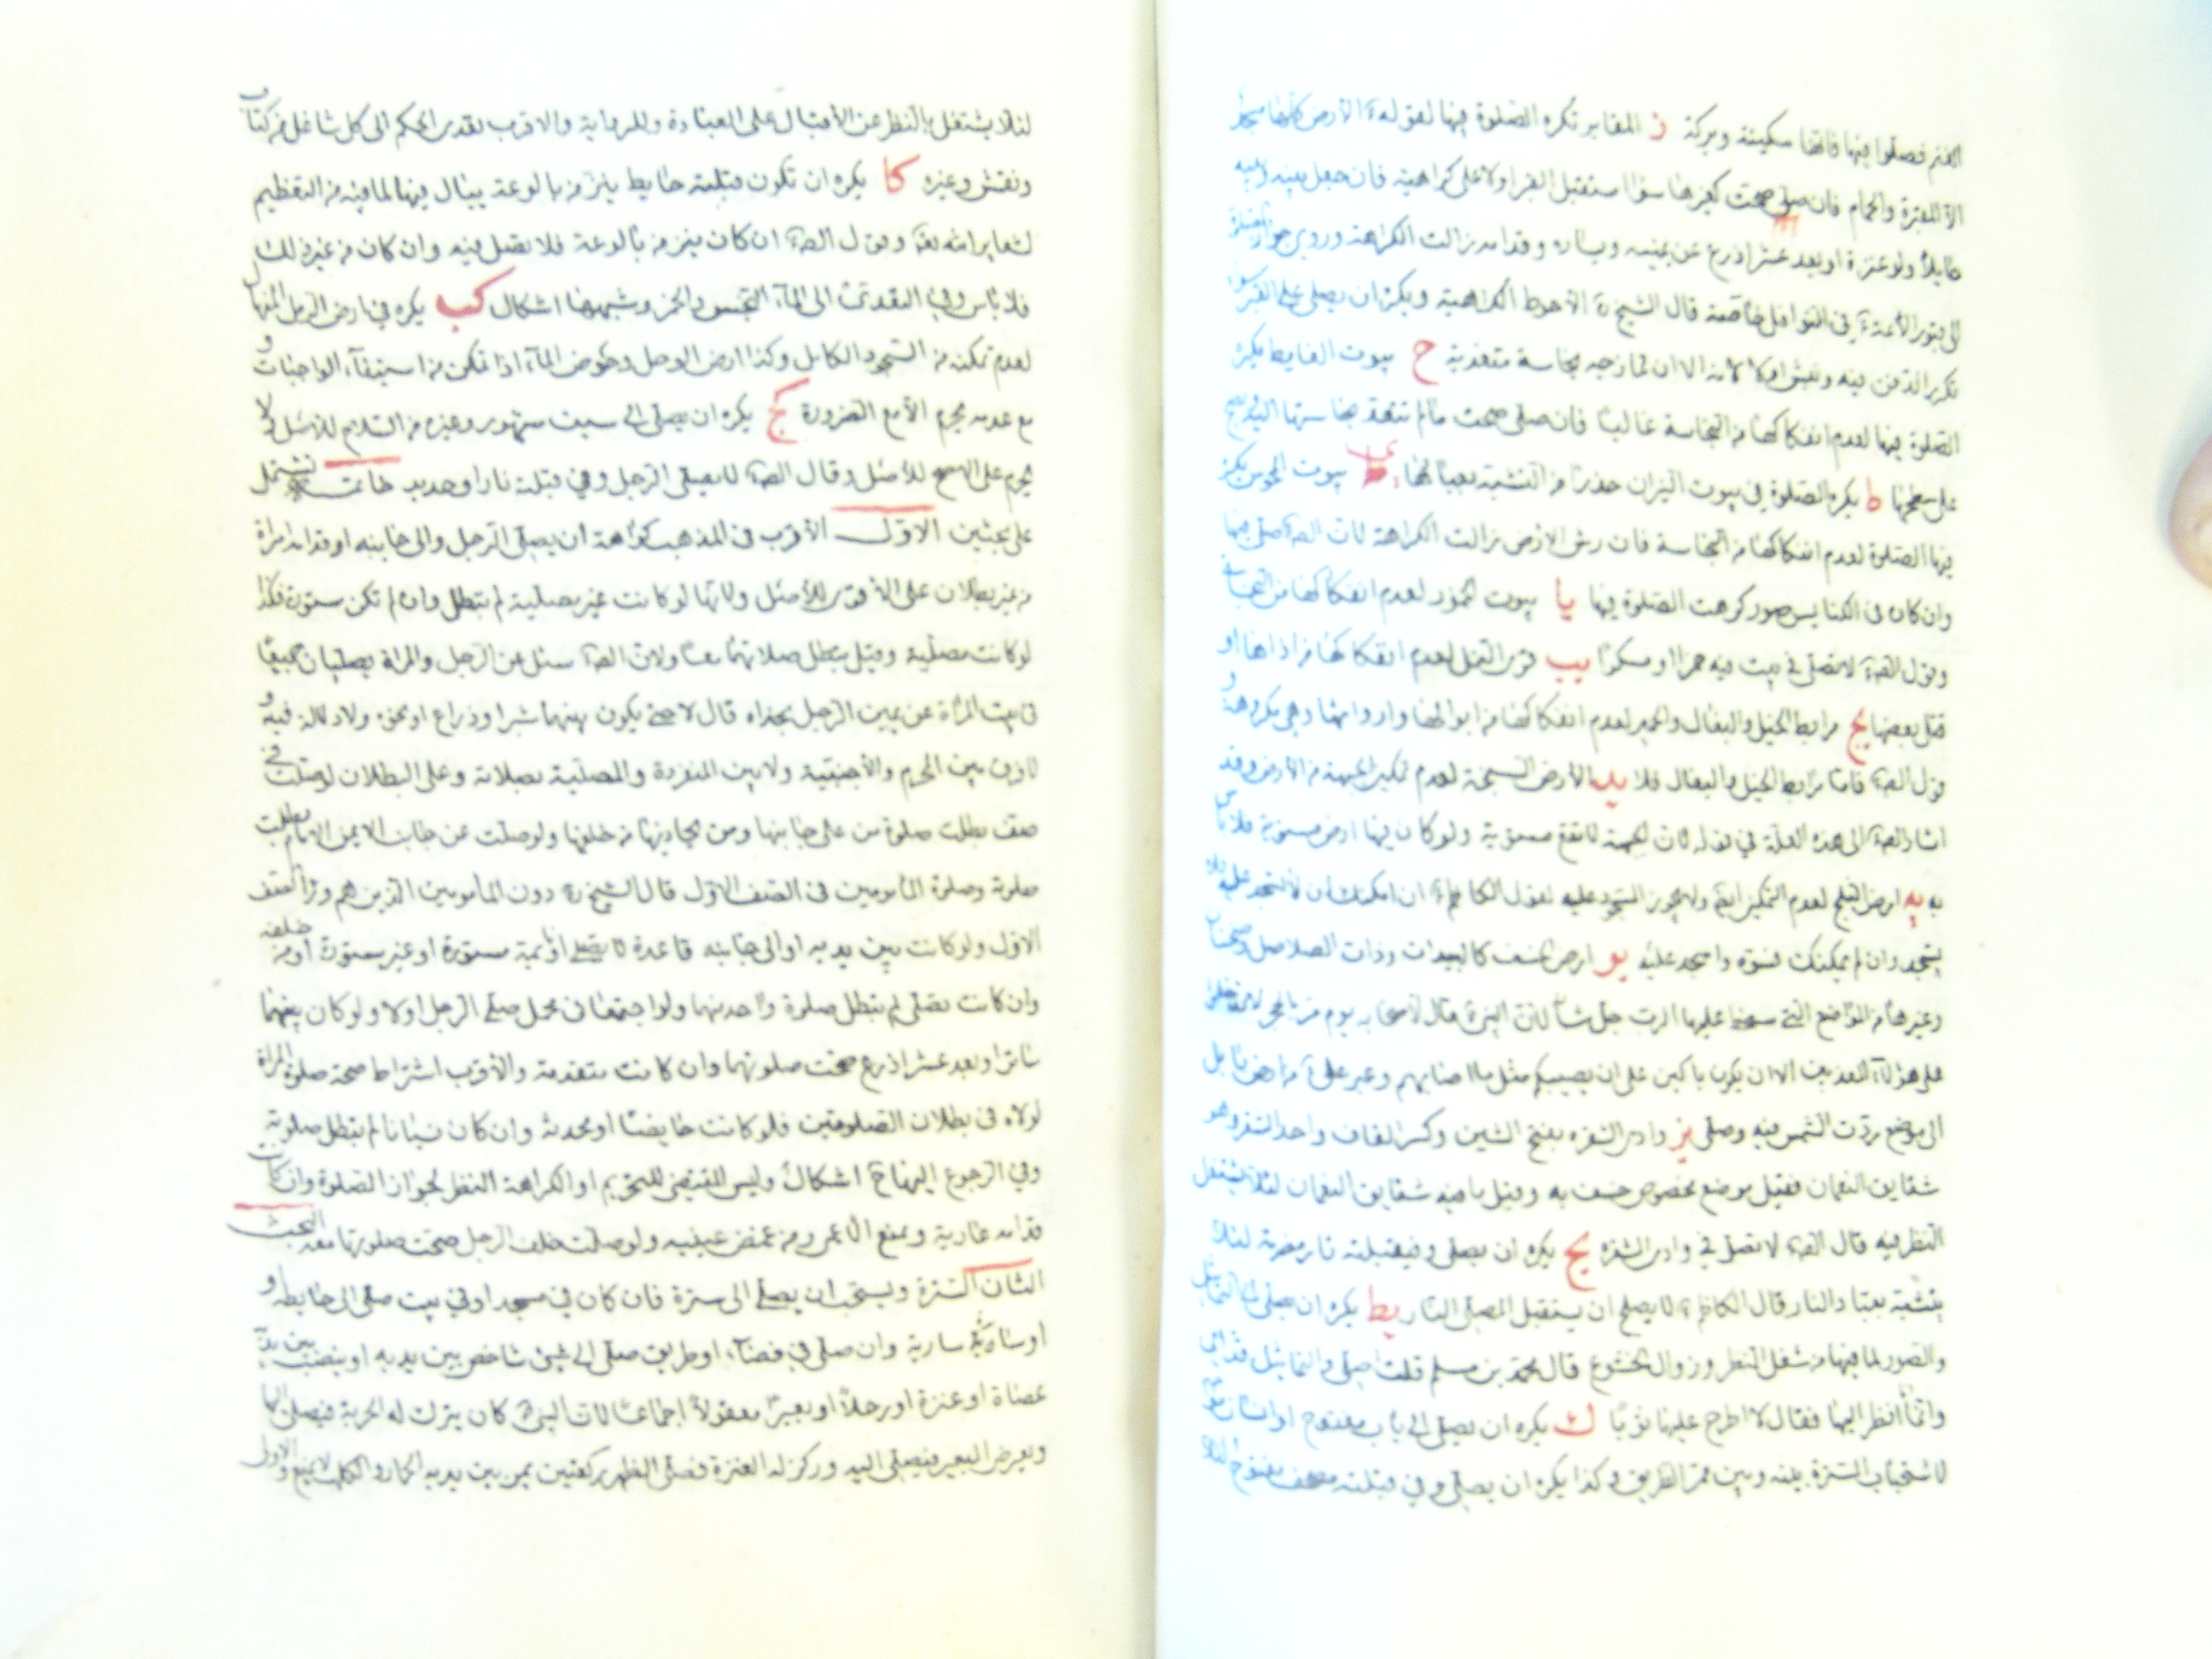 الغنم فصلوا فيها فانها سكينة وبركة ز المقابر تكره الصلوة فيها لقوله ع الارض كلها مسجد
الا المقبرة والحمام فان صلى صحت كغيرها سواء استقبل القبر اولا على كراهية فان جعل بينه وبينه
حايلا ولو عنزة او بعد عشر اذرع عن يمينه ويساره وقدامه زالت الكراهة وروى جواز
الى قبور الائمة ع في النوافل خاصة قال الشيخ ره الاحوط الكراهية ويكره ان يصلى على القبر سواء
تكرر الدفن فيه ونبش اولا لانه الا ان تمازجه نجاسة متعدية ح بيوت الغايط يكره
الصلوة فيها لعدم انفكاكها من النجاسة غالبا فان صلى صحت ما لم تتعد نجاستها اليه
على سطحها ط يكره الصلوة في بيوت النيران حذرا من التشبه بعبادها ى بيوت المجوس يكره
فيها الصلوة لعدم انفكاكها من النجاسة فان رش الارض زالت الكراهة لان الص ع صلى فيها
وان كان فى الكنايس صور كرهت الصلوة فيها يا بيوت الخمور لعدم انفكاكها من النجاسة
وقول الص ع لا تصلى في بيت فيه خمرا او مسكرا يب قرى النمل لعدم انفكاكها من اذاها او
قتل بعضها يج مرابط الخيل والبغال والحمير لعدم انفكاكها من ابوالها وارواثها وهي مكروهة و
قول الص ع فاما مرابط الخيل والبغال فلا يد الارض السبخة لعدم تمكين الجبهة من الارض وقد
اشار الص ع الى هذه العلة في قوله لان الجبهة لا تقع مستوية ولو كان فيها ارض مستوية فلا باس
به يه ارض الثلج لعدم التمكين ايضا ولا يجوز السجود عليه لقول الكاظم ع ان امكنك ان لا تسجد عليه فلا
تسجد وان لم يمكنك فسوه واسجد عليه يو ارض الخسف كالبيداء وذات الصلاصل وضجنان
وغيرها من المواضع التى سخط عليها الرب جل شأنه لان النبى ص قال لاصحابه يوم مر بالحجر لا تدخلوا
على هؤلاء المعذبين الا ان تكونوا باكين على ان يصيبكم مثل ما اصابهم وعبر على ع من ارض بابل
الى موضع ردت الشمس فيه وصلى يز وادى الشقرة بفتح الشين وكسر القاف واحد الشقر وهو
شقايق النعمان فقيل موضع مخصوص خسف به وقيل ما فيه شقايق النعمان لئلا يشتغل
النظر فيه قال الص ع لا تصل في وادى الشقرة يح يكره ان يصلى وفي قبلته نار مضرمة لئلا
يتشبه بعباد النار قال الكاظم ع لا يصلح ان يستقبل المصلى النار يط يكره ان يصلى الى التماثيل
والصور لما فيها من شغل النظر وزوال الخشوع قال محمد بن مسلم قلت اصلى والتماثيل قدامى
وانا انظر اليها فقال لا اطرح عليها ثوبا ك يكره ان يصلى الى باب مفتوح او انسان مواجه
لاستحباب السترة بينه وبين ممر الطريق وكذا يكره ان يصلى وفي قبلته مصحف مفتوح لئلا
لئلا يشتغل بالنظر عن الاقبال على العبادة وللرواية والاقرب تعدى الحكم الى كل شاغل من كتاب و
ونقش وغيره كا يكره ان تكون قبلته حايط ينز من بالوعة يبال فيها لما فيه من التعظيم
لشعاير الله تعا وقول الص ع ان كان ينز من بالوعة فلا تصل فيه وان كان من غير ذلك
فلا باس وفي التعدى الى الماء النجس والخمر وشبههما اشكال كب يكره في ارض الرمل المنهال
لعدم تمكنه من السجود الكامل وكذا ارض الوحل وحوض الماء اذا تمكن من استيفاء الواجبات و
مع عدمه يحرم الا مع الضرورة كج يكره ان يصلى الى سيف مشهور وغيره من السلاح للاصل لا
يحرم على الاصح للاصل وقال الص ع لا يصلى الرجل وفي قبلته نار او حديد خاتمة تشتمل
على بحثين الاول الاقرب فى المذهب كراهة ان يصلى الرجل والى جانبه او قدامه امراة
من غير بطلان على الاقوى للاصل ولانها لو كانت غير مصلية لم تبطل وان لم تكن مستورة فكذا
لو كانت مصلية وقيل تبطل صلاتهما معا ولان الص ع سئل عن الرجل والمراة يصليان جميعا
فى بيت المراة عن يمين الرجل بحذاه قال لا حتى يكون بينهما شبر او ذراع او نحوه ولا دلالة فيه و
لا فرق بين المحرم والاجنبية ولا بين المنفردة والمصلية بصلاته وعلى البطلان لو صلت في
صف بطلت صلوة من على جانبها ومن يحاذيها من خلفها ولو صلت عن جانب الايمن الامام بطلت
صلوته وصلوة المامومين فى الصف الاول قال الشيخ ره دون المامومين الذين هم وراء الصف
الاول ولو كانت بين يديه او الى جانبه قاعدة لا تصلى او نائمة مستورة او غير مستورة او من خلفه
وان كانت تصلى لم تبطل صلوة واحد منهما ولو اجتمعا فى محمل صلى الرجل اولا ولو كان بينهما
ساتر او بعد عشر اذرع صحت صلوتهما وان كانت متقدمة والاقرب اشتراط صحة صلوة المراة
لولاه فى بطلان الصلوتين فلو كانت حايضا او محدثة وان كان نسيانا لم تبطل صلوته
وفي الرجوع اليها ح اشكال وليس المقتضى للتحريم او الكراهة النظر لجواز الصلوة وان كانت
قدامه عارية ويمنع الاعمى ومن غمض عينيه ولو صلت خلف الرجل صحت صلوتها معه البحث
الثانى السترة ويستحب ان يصلى الى سترة فان كان في مسجد او في بيت صلى الى حايطه و
او سارية وان صلى في فضاء او طريق صلى الى شئ شاخص بين يديه او ينصب بين يديه
عصاة او عنزة او رحلا او بعيرا معقولا اجماعا لان النبى ص كان يترك له الحربة فيصلى اليها
ويعرض البعير فيصلى اليه وركز له العنزة فصلى الظهر ركعتين يمر بين يديه الحمار والكلب لا يمنع والاول